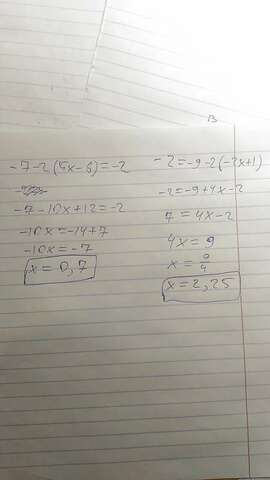 B
-7-2(5x-6)=-2
-7-10x+12=-2
-10x=-14+7
-10x=-7
x=0,7
-2=-9-2(-2x+1)
-2=-9+4x-2
7=4x-2
4x=9
x=9/4
x=2,25